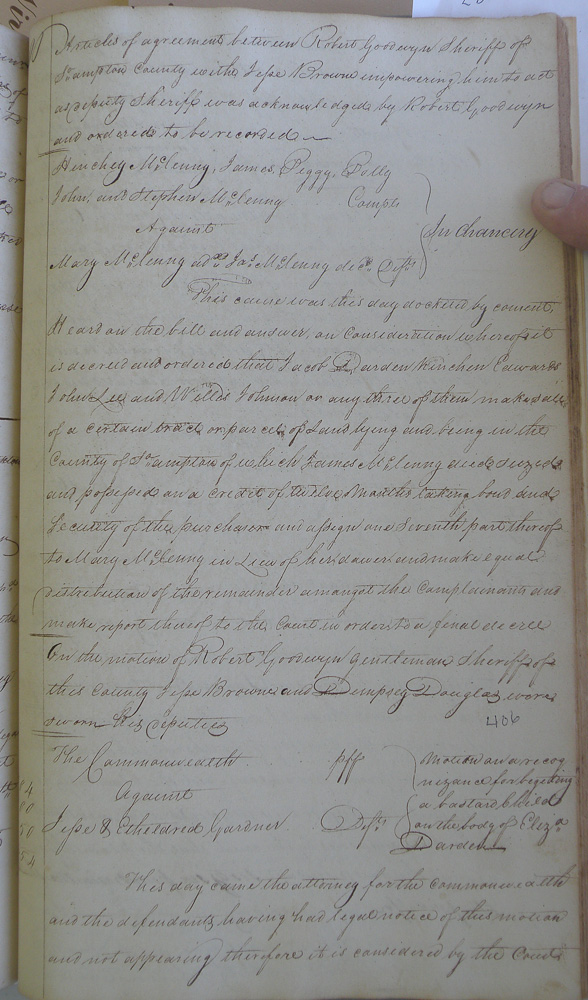 Articles of agreement between Robert Goodwyn Sheriff of
So.ampton County with Jesse Browne empowering him to act
as deputy Sheriff was acknowledged by Robert Goodwyn
and ordered to be recorded
Henchey McClenny, James, Peggy, Polly
John, and Stephen McClenny Complts
Against
In Chancery
Mary McClenny admx Jas. McClenny decd. Defts.
This cause was this day docketed by consent,
Heard on the bill and answer, on Consideration whereof it
is decreed and ordered that Jacob Darden Kinchen Edwards
John Lee and Willis Johnson or any three of them make sale
of a certain tract or parcel of Land lying and being in the
County of So.ampton of which James McClenny died seized
and possessed on a credit of twelve Months taking bond and
Security of the purchaser and assign one Seventh part thereof
to Mary McClenny in Lieu of her dower and make equal
distribution of the remainder amongst the Complainants and
make report thereof to the Court in order to a final decree
On the motion of Robert Goodwyn Gentleman Sheriff of
this County Jesse Browne and Dempsey Douglas were
sworn his deputies
406
The Commonwealth plff
Against
Jesse & Etheldred Gardner Defts.
Motion on a recog
nizance for begetting
a bastard Child
on the body of Eliza.
Darden
This day came the attorney for the commonwealth
and the defendants having had legal notice of this motion
and not appearing therefore it is considered by the Court